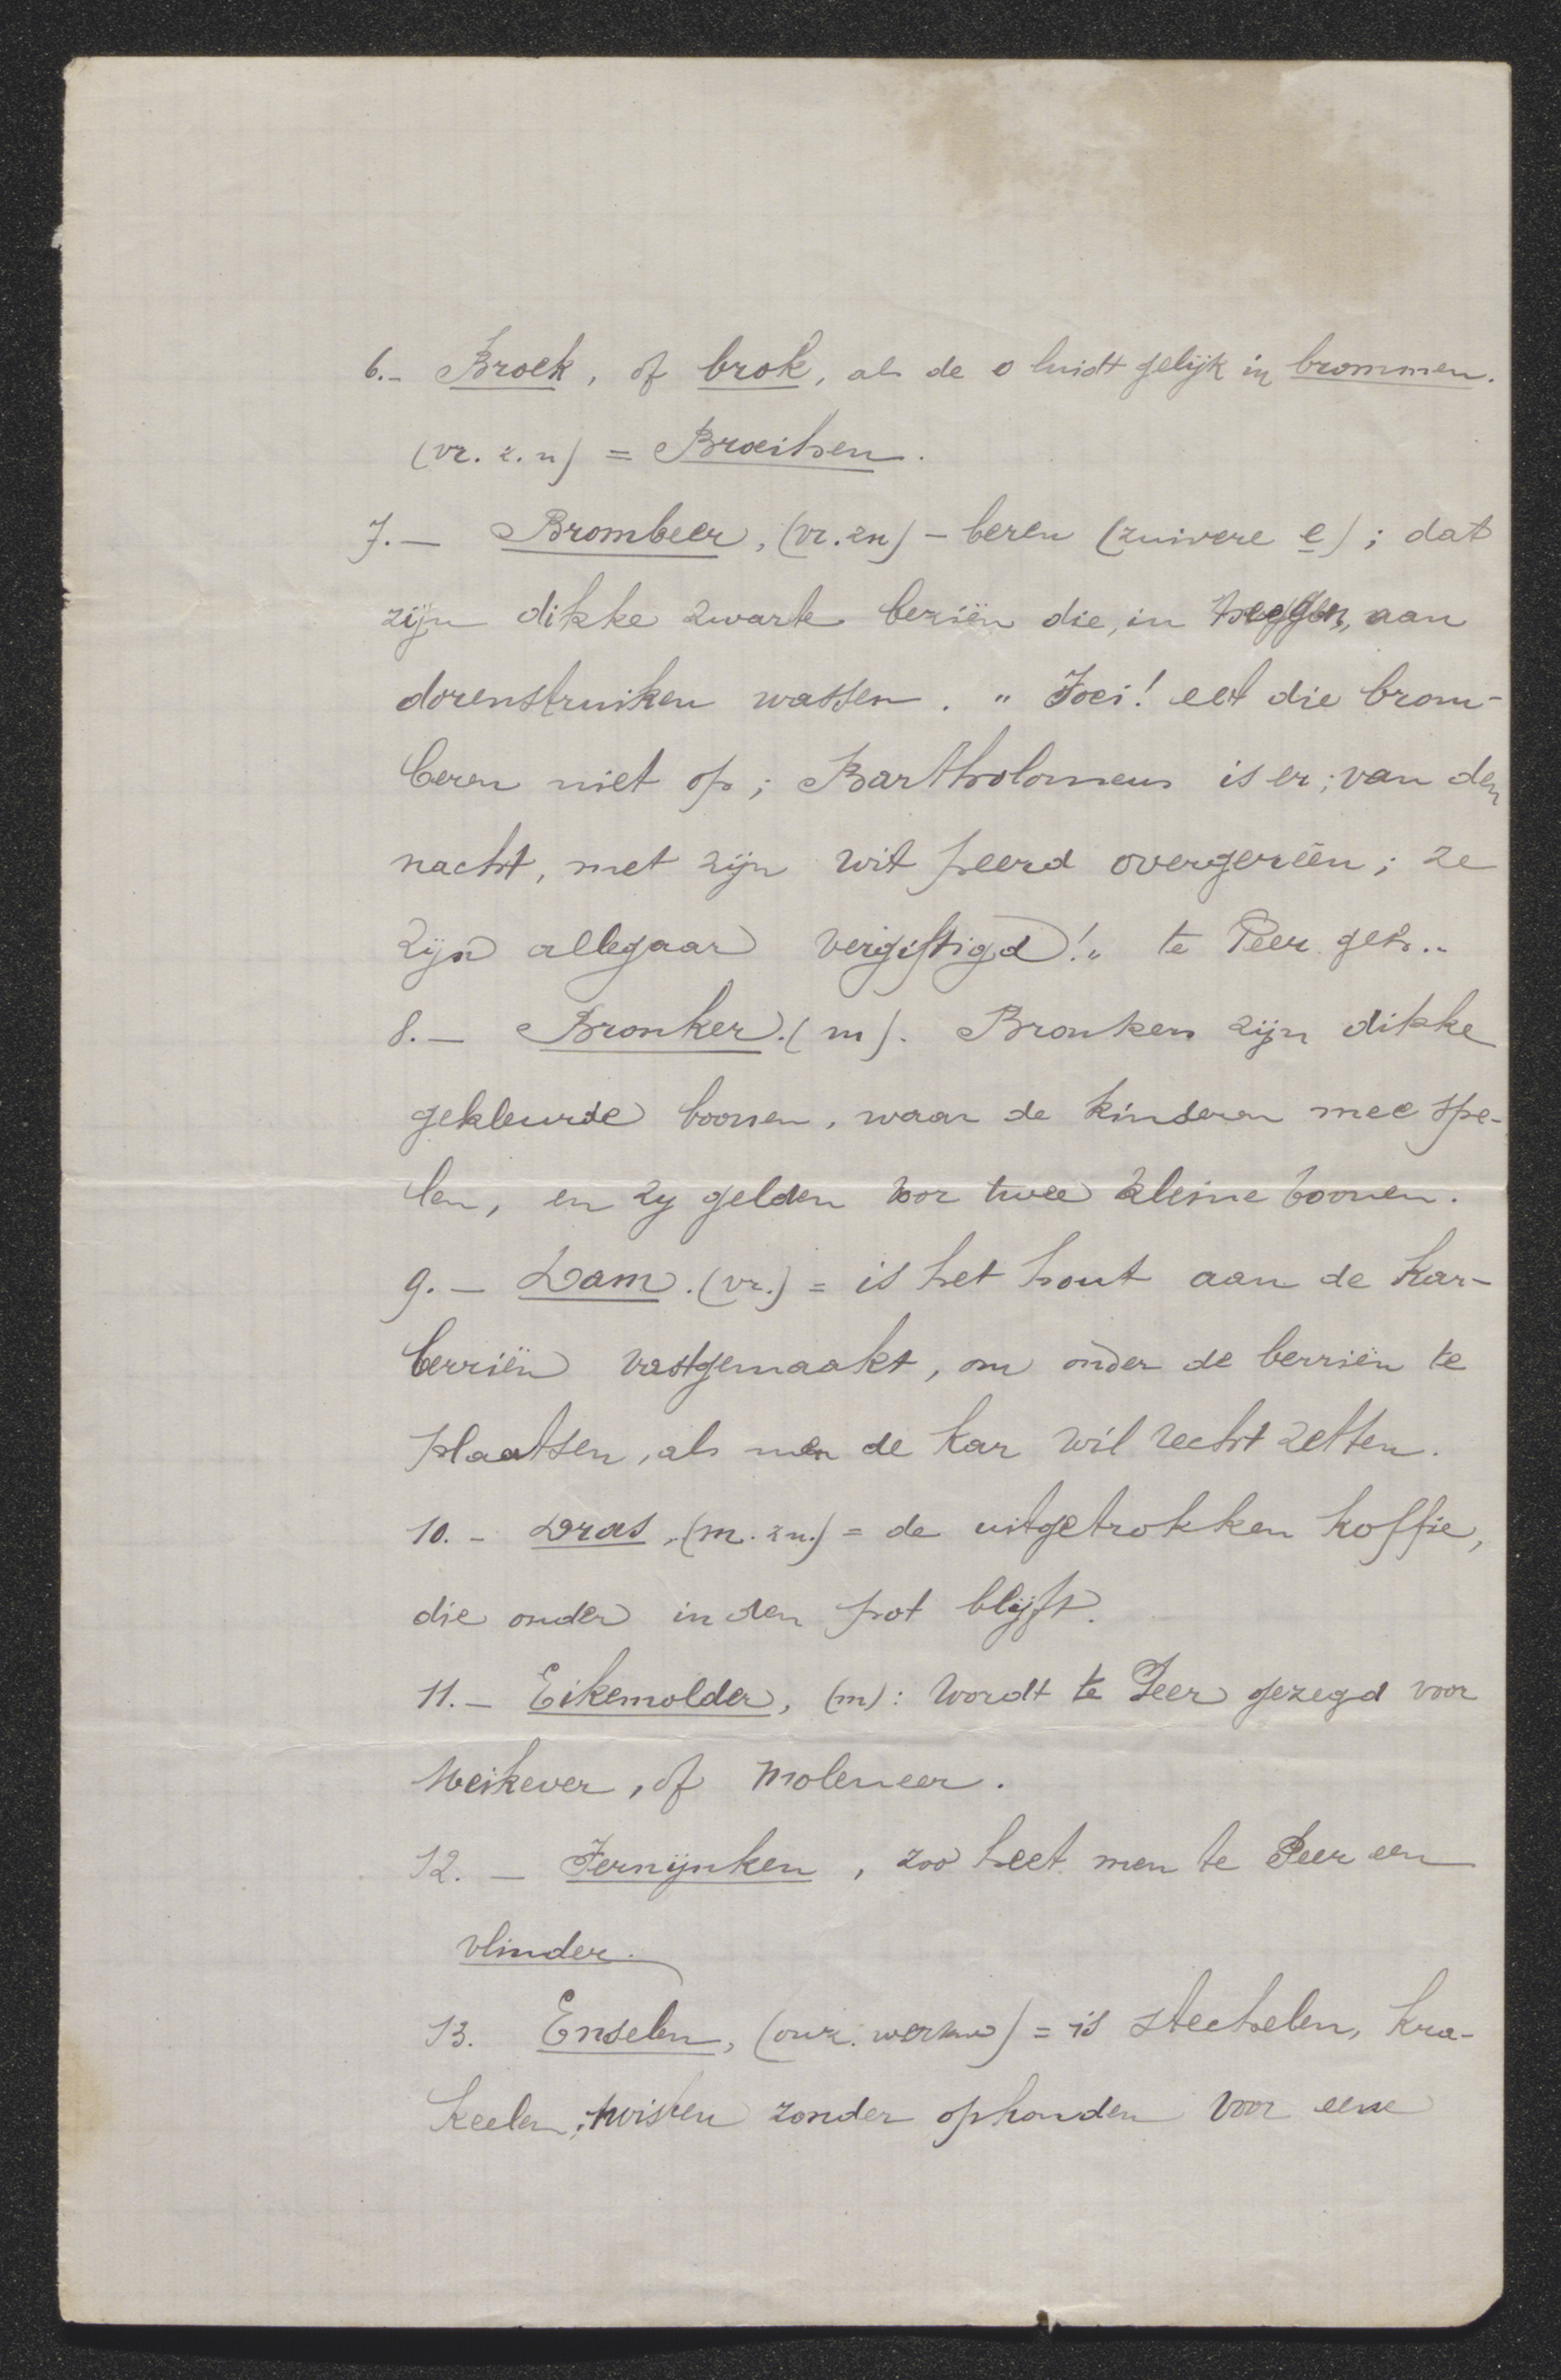 6.- Broek, of brok, als de o luidt gelijk in brommen.
(vr. z. n) = Broeihen.
7.- Brombeer, (vr. zn) - beren (zuivere e); dat
zijn dikke zwarte beziën die, in heggen, aan
dorenstruiken wassen. " Joei! eet die brom-
beren niet op; Bartholomeus is er, van den
nacht, met zijn wit peerd overgereën; ze
zijn allegaar vergiftigd!" te Peer geh..
8.- Bronker. (m). Bronkers zijn dikke
gekleurde boonen, waar de kinderen mee spe-
len, en zy gelden voor twee kleine boonen.
9.- Dam. (vr.) = is het hout aan de kar-
berriën vastgemaakt, om onder de berriën te
plaatsen, als men de kar wil recht zetten.
10.- Dras, (m. zn.) = de uitgetrokken koffie,
die onder in den pot blijft.
11.- Eikemolder, (m): wordt te Peer gezegd voor
Meikever, of moleneer.
12.- Fernijnken, zoo heet men te Peer een
vlinder.
13. Enselen, (onz. werkw) = is stechelen, kra-
keelen, twisten zonder ophouden voor eene